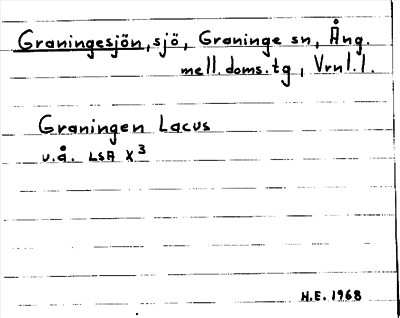 Graningesjön, sjö, Graninge sn, Ång.
mell. doms. tg, Vrnl. l.
Graningen Lacus
u.å. LSA X³
H.E. 1968